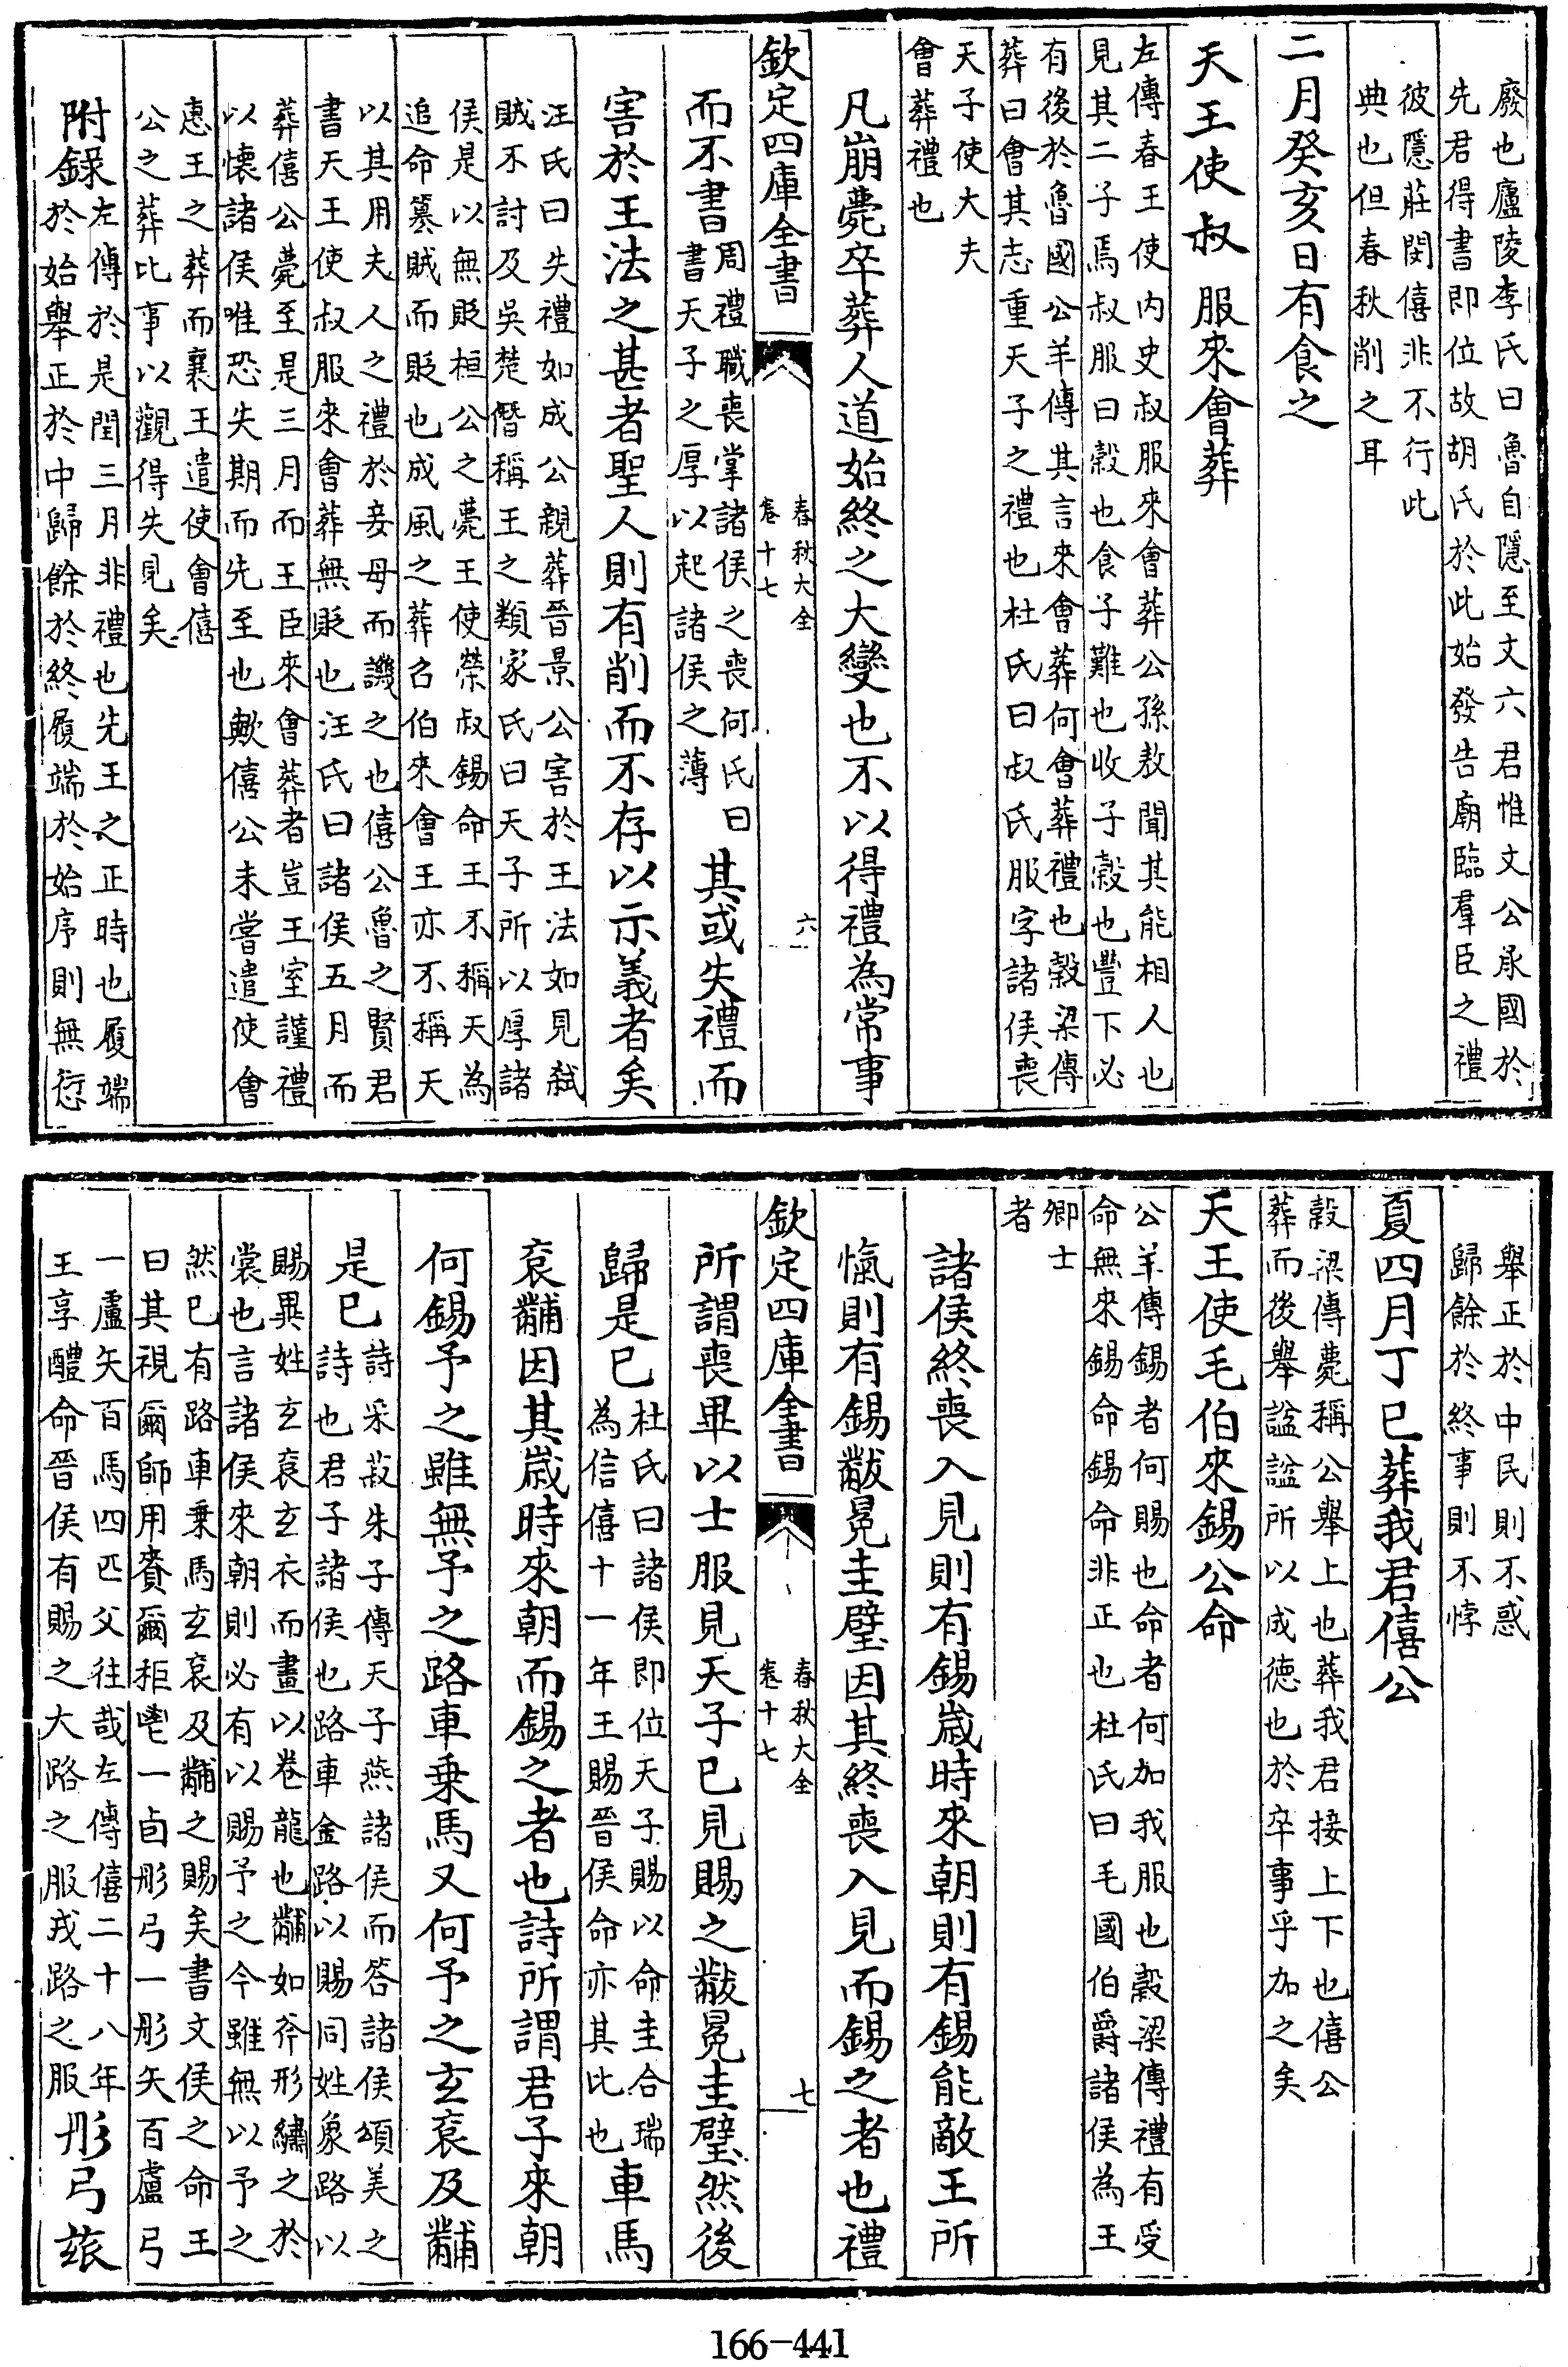 廢也廬陵李氏曰魯自隱至文六君惟文公承國於
先君得書即位故胡氏於此始發告廟臨羣臣之禮
彼隱莊閔僖非不行此
典也但春秋削之耳
二月癸亥日有食之
天王使叔服來會葬
左傳春王使内史叔服來會葬公孫敖聞其能相人也
見其二子焉叔服曰榖也食子難也收子榖也豐下必
有後於魯國公羊傳其言來會葬何會葬禮也榖梁傳
葬曰會其志重天子之禮也杜氏曰叔氏服字諸侯喪
天子使大夫
會葬禮也
凡崩薨卒葬人道始終之大變也不以得禮為常事
欽定四庫全書
春秋大全
卷十七
六
而不書
周禮職喪掌諸侯之喪何氏曰
書天子之厚以起諸侯之薄
其或失禮而
害於王法之甚者聖人則有削而不存以示義者矣
汪氏曰失禮如成公親葬晉景公害於王法如見弑
賊不討及吳楚僭稱王之類家氏曰天子所以厚諸
侯是以無貶桓公之薨王使榮叔錫命王不稱天為
追命簒賊而貶也成風之葬召伯來會王亦不稱天
以其用夫人之禮於妾母而譏之也僖公魯之賢君
書天王使叔服來會葬無貶也汪氏曰諸侯五月而
葬僖公薨至是三月而王臣來會葬者豈王室謹禮
以懷諸侯唯恐失期而先至也歟僖公未嘗遣使會
惠王之葬而襄王遣使會僖
公之葬比事以觀得失見矣
附錄
左傳於是閏三月非禮也先王之正時也履端
於始舉正於中歸餘於終履端於始序則無愆
舉正於中民則不惑
歸餘於終事則不悖
夏四月丁巳葬我君僖公
榖梁傳薨稱公舉上也葬我君接上下也僖公
葬而後舉諡諡所以成德也於卒事乎加之矣
天王使毛伯來錫公命
公羊傳錫者何賜也命者何加我服也榖梁傳禮有受
命無來錫命錫命非正也杜氏曰毛國伯爵諸侯為王
卿士
者
諸侯終喪入見則有錫歲時來朝則有錫能敵王所
愾則有錫黻冕圭璧因其終喪入見而錫之者也禮
欽定四庫全書
春秋大全
卷十七
七
所謂喪畢以士服見天子已見賜之黻冕圭璧然後
歸是已
杜氏曰諸侯即位天子賜以命圭合瑞
為信僖十一年王賜晉侯命亦其比也
車馬
衮黼因其歲時來朝而錫之者也詩所謂君子來朝
何錫予之雖無予之路車乘馬又何予之玄衮及黼
是已
詩采菽朱子傳天子燕諸侯而答諸侯頌美之
詩也君子諸侯也路車金路以賜同姓象路以
賜異姓玄衮玄衣而畫以卷龍也黼如斧形繡之於
裳也言諸侯來朝則必有以賜予之今雖無以予之
然已有路車乘馬玄衮及黼之賜矣書文侯之命王
曰其視爾師用賚爾秬鬯一卣彤弓一彤矢百盧弓
一盧矢百馬四匹父往哉左傳僖二十八年
王享醴命晉侯宥賜之大路之服戎路之服
彤弓玈
166-441